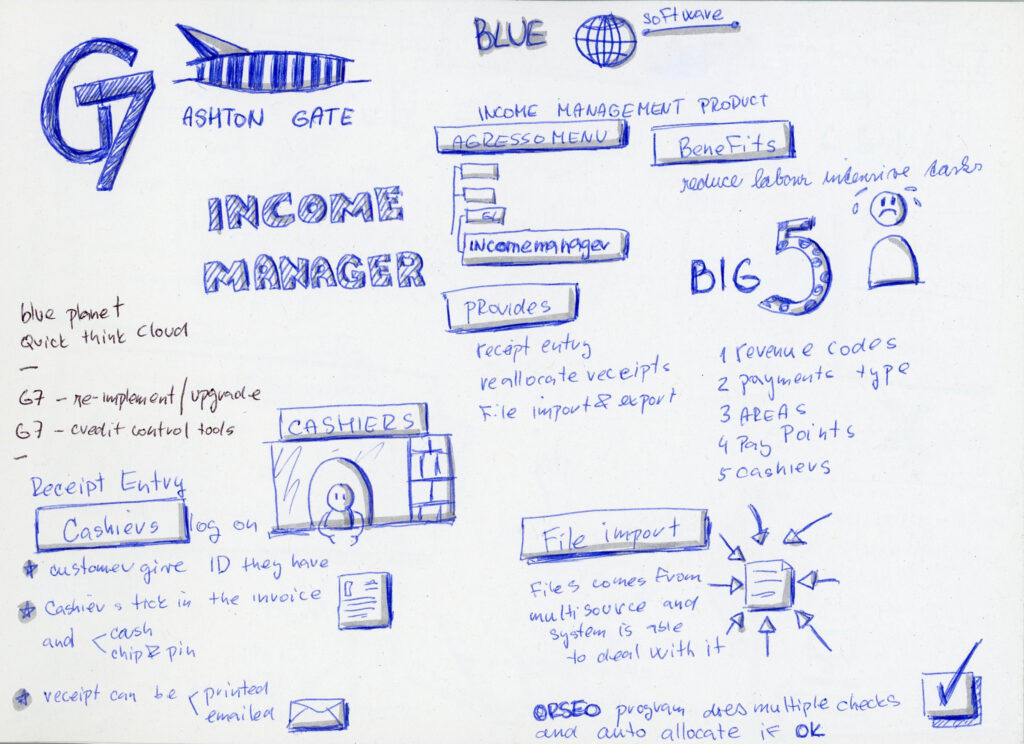 G7
ASHTON GATE
INCOME
MANAGER
blue planet
Quick think Cloud
—
G7 - re-implement/upgrade
G7 - credit control tools
—
Receipt Entry
Cashiers log on
CASHIERS
* customer give ID they have
* Cashiers tick in the invoice
and < cash
chip & pin
* receipt can be < printed
emailed
BLUE software
INCOME MANAGEMENT PRODUCT
AGRESSO MENU
GL
incomemanager
PROVIDES
receipt entry
reallocate receipts
File import & export
BeneFits
reduce labour intensive tasks
BIG 5
1 revenue codes
2 payments type
3 AREAS
4 Pay Points
5 cashiers
File import
Files comes From
multisource and
system is able
to deal with it
ORSEO program does multiple checks
and auto allocate if OK